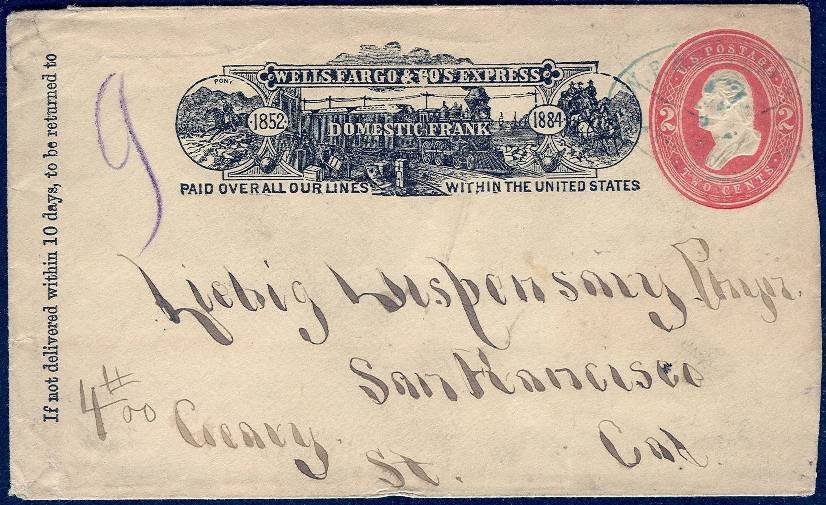 If not delivered within 10 days, to be returned to
9
PONY
WELLS, FARGO & CO'S EXPRESS
1852
DOMESTIC FRANK
1884
PAID OVER ALL OUR LINES WITHIN THE UNITED STATES
U.S. POSTAGE
2 2
TWO CENTS
Liebig Dispensary
San Francisco
400
Geary
St. Cal.